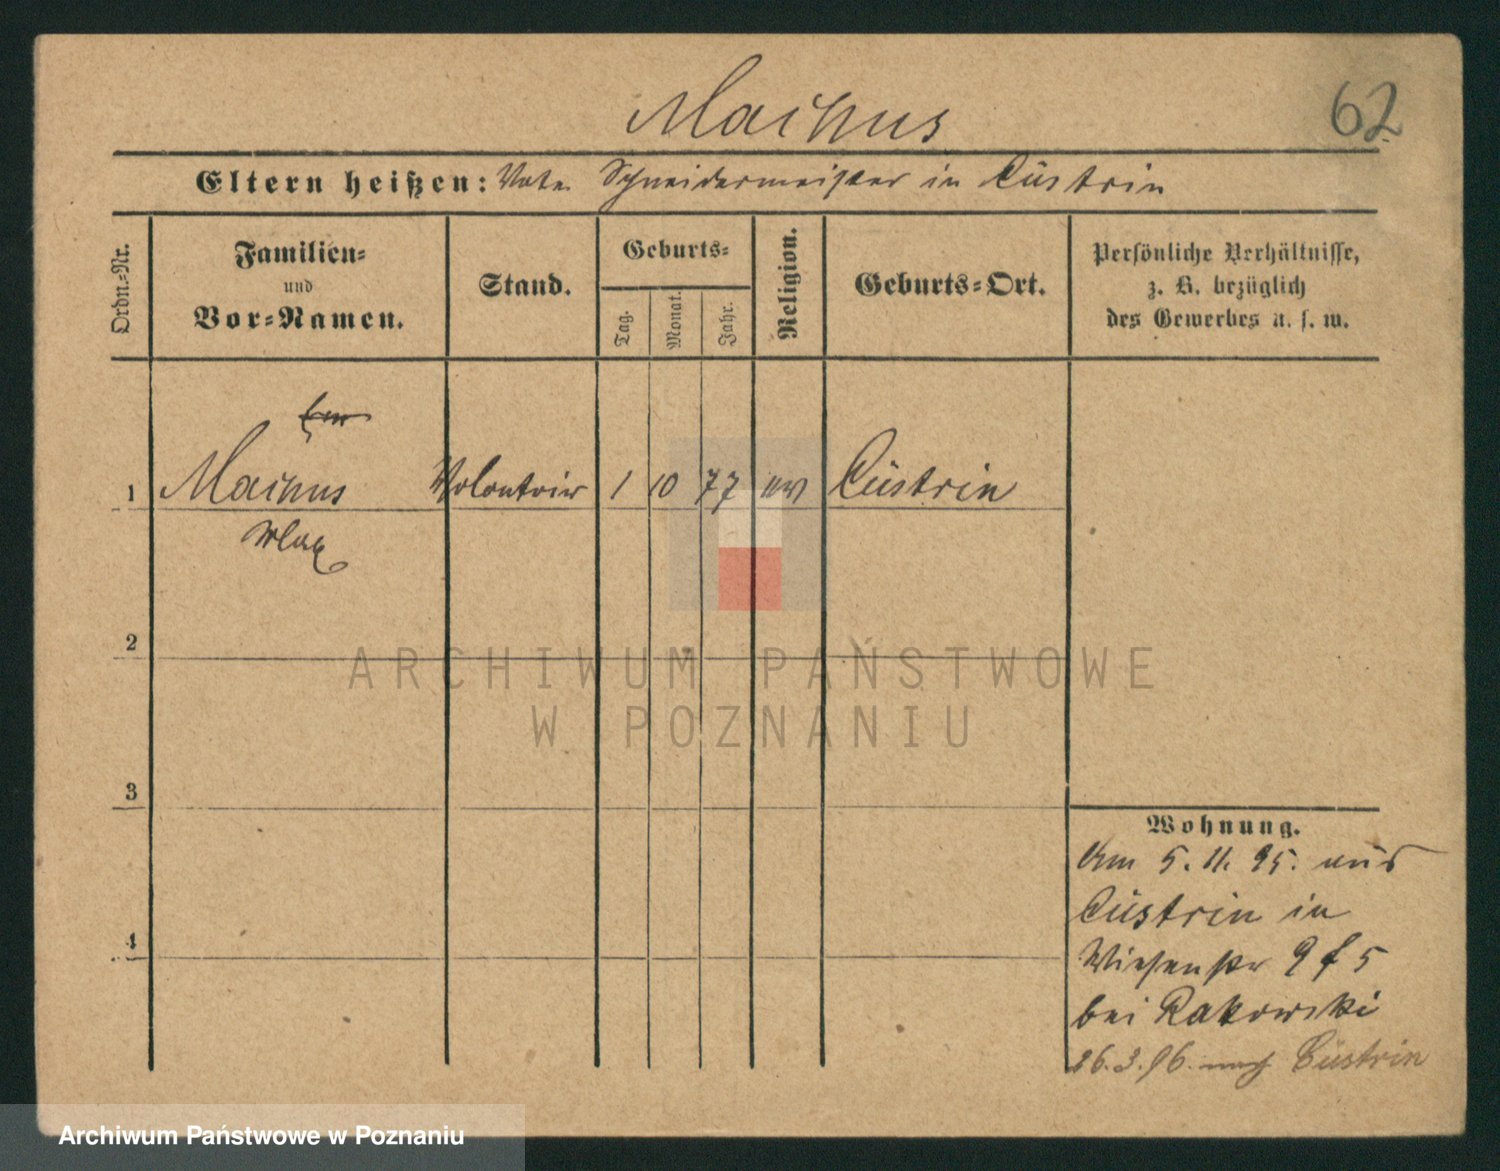 Maihus
62
Eltern heißen: Vater Schneidermeister in Cüstrin
Ordn.-Nr.
Familien-
und
Vor-Namen.
Stand.
Geburts-
Tag.
Monat.
Jahr.
Religion.
Geburts-Ort.
Persönliche Verhältnisse,
z. B. bezüglich
des Gewerbes u. s. w.
1 Volontair 1 10 77 ev Cüstrin
Max
2
ARCHIWUM PAŃSTWOWE
W POZNANIU
3
4
Wohnung.
Am 5. 11. 95. aus
Cüstrin in
Wiesenstr 9 f 5
bei Rakowski
26. 3. 96. nach Cüstrin
Archiwum Państwowe w Poznaniu